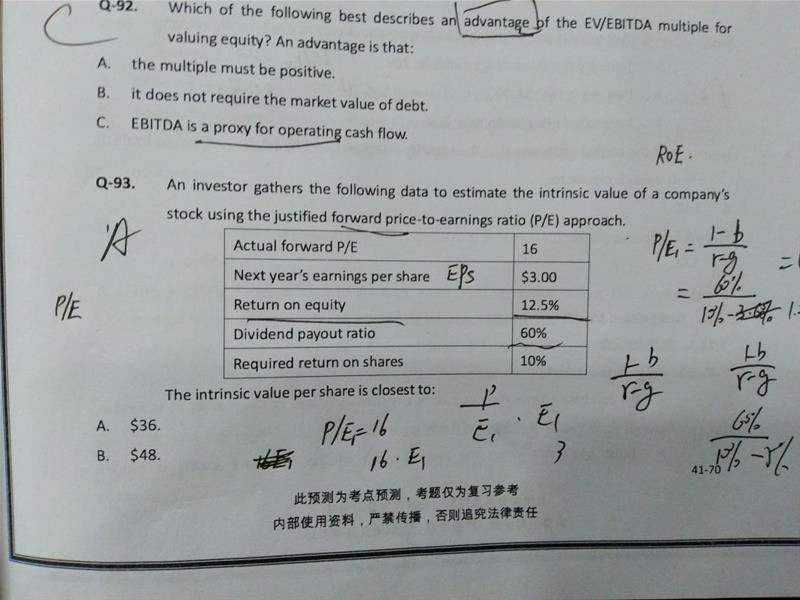 Q-92. Which of the following best describes an advantage of the EV/EBITDA multiple for
valuing equity? An advantage is that:
A. the multiple must be positive.
B. it does not require the market value of debt.
C. EBITDA is a proxy for operating cash flow.
C
ROE.
Q-93. An investor gathers the following data to estimate the intrinsic value of a company's
stock using the justified forward price-to-earnings ratio (P/E) approach.
A
P/E
Actual forward P/E 16
Next year's earnings per share EPS $3.00
Return on equity 12.5%
Dividend payout ratio 60%
Required return on shares 10%
P/E₁ = 1-b / r-g =
= 60% / 10% -
1-b / r-g
1-b / r-g
The intrinsic value per share is closest to:
A. $36.
B. $48.
P/E₁=16
16 · E₁
P / E₁ · E₁
3
10% - 5%
41-70
此预测为考点预测，考题仅为复习参考
内部使用资料，严禁传播，否则追究法律责任